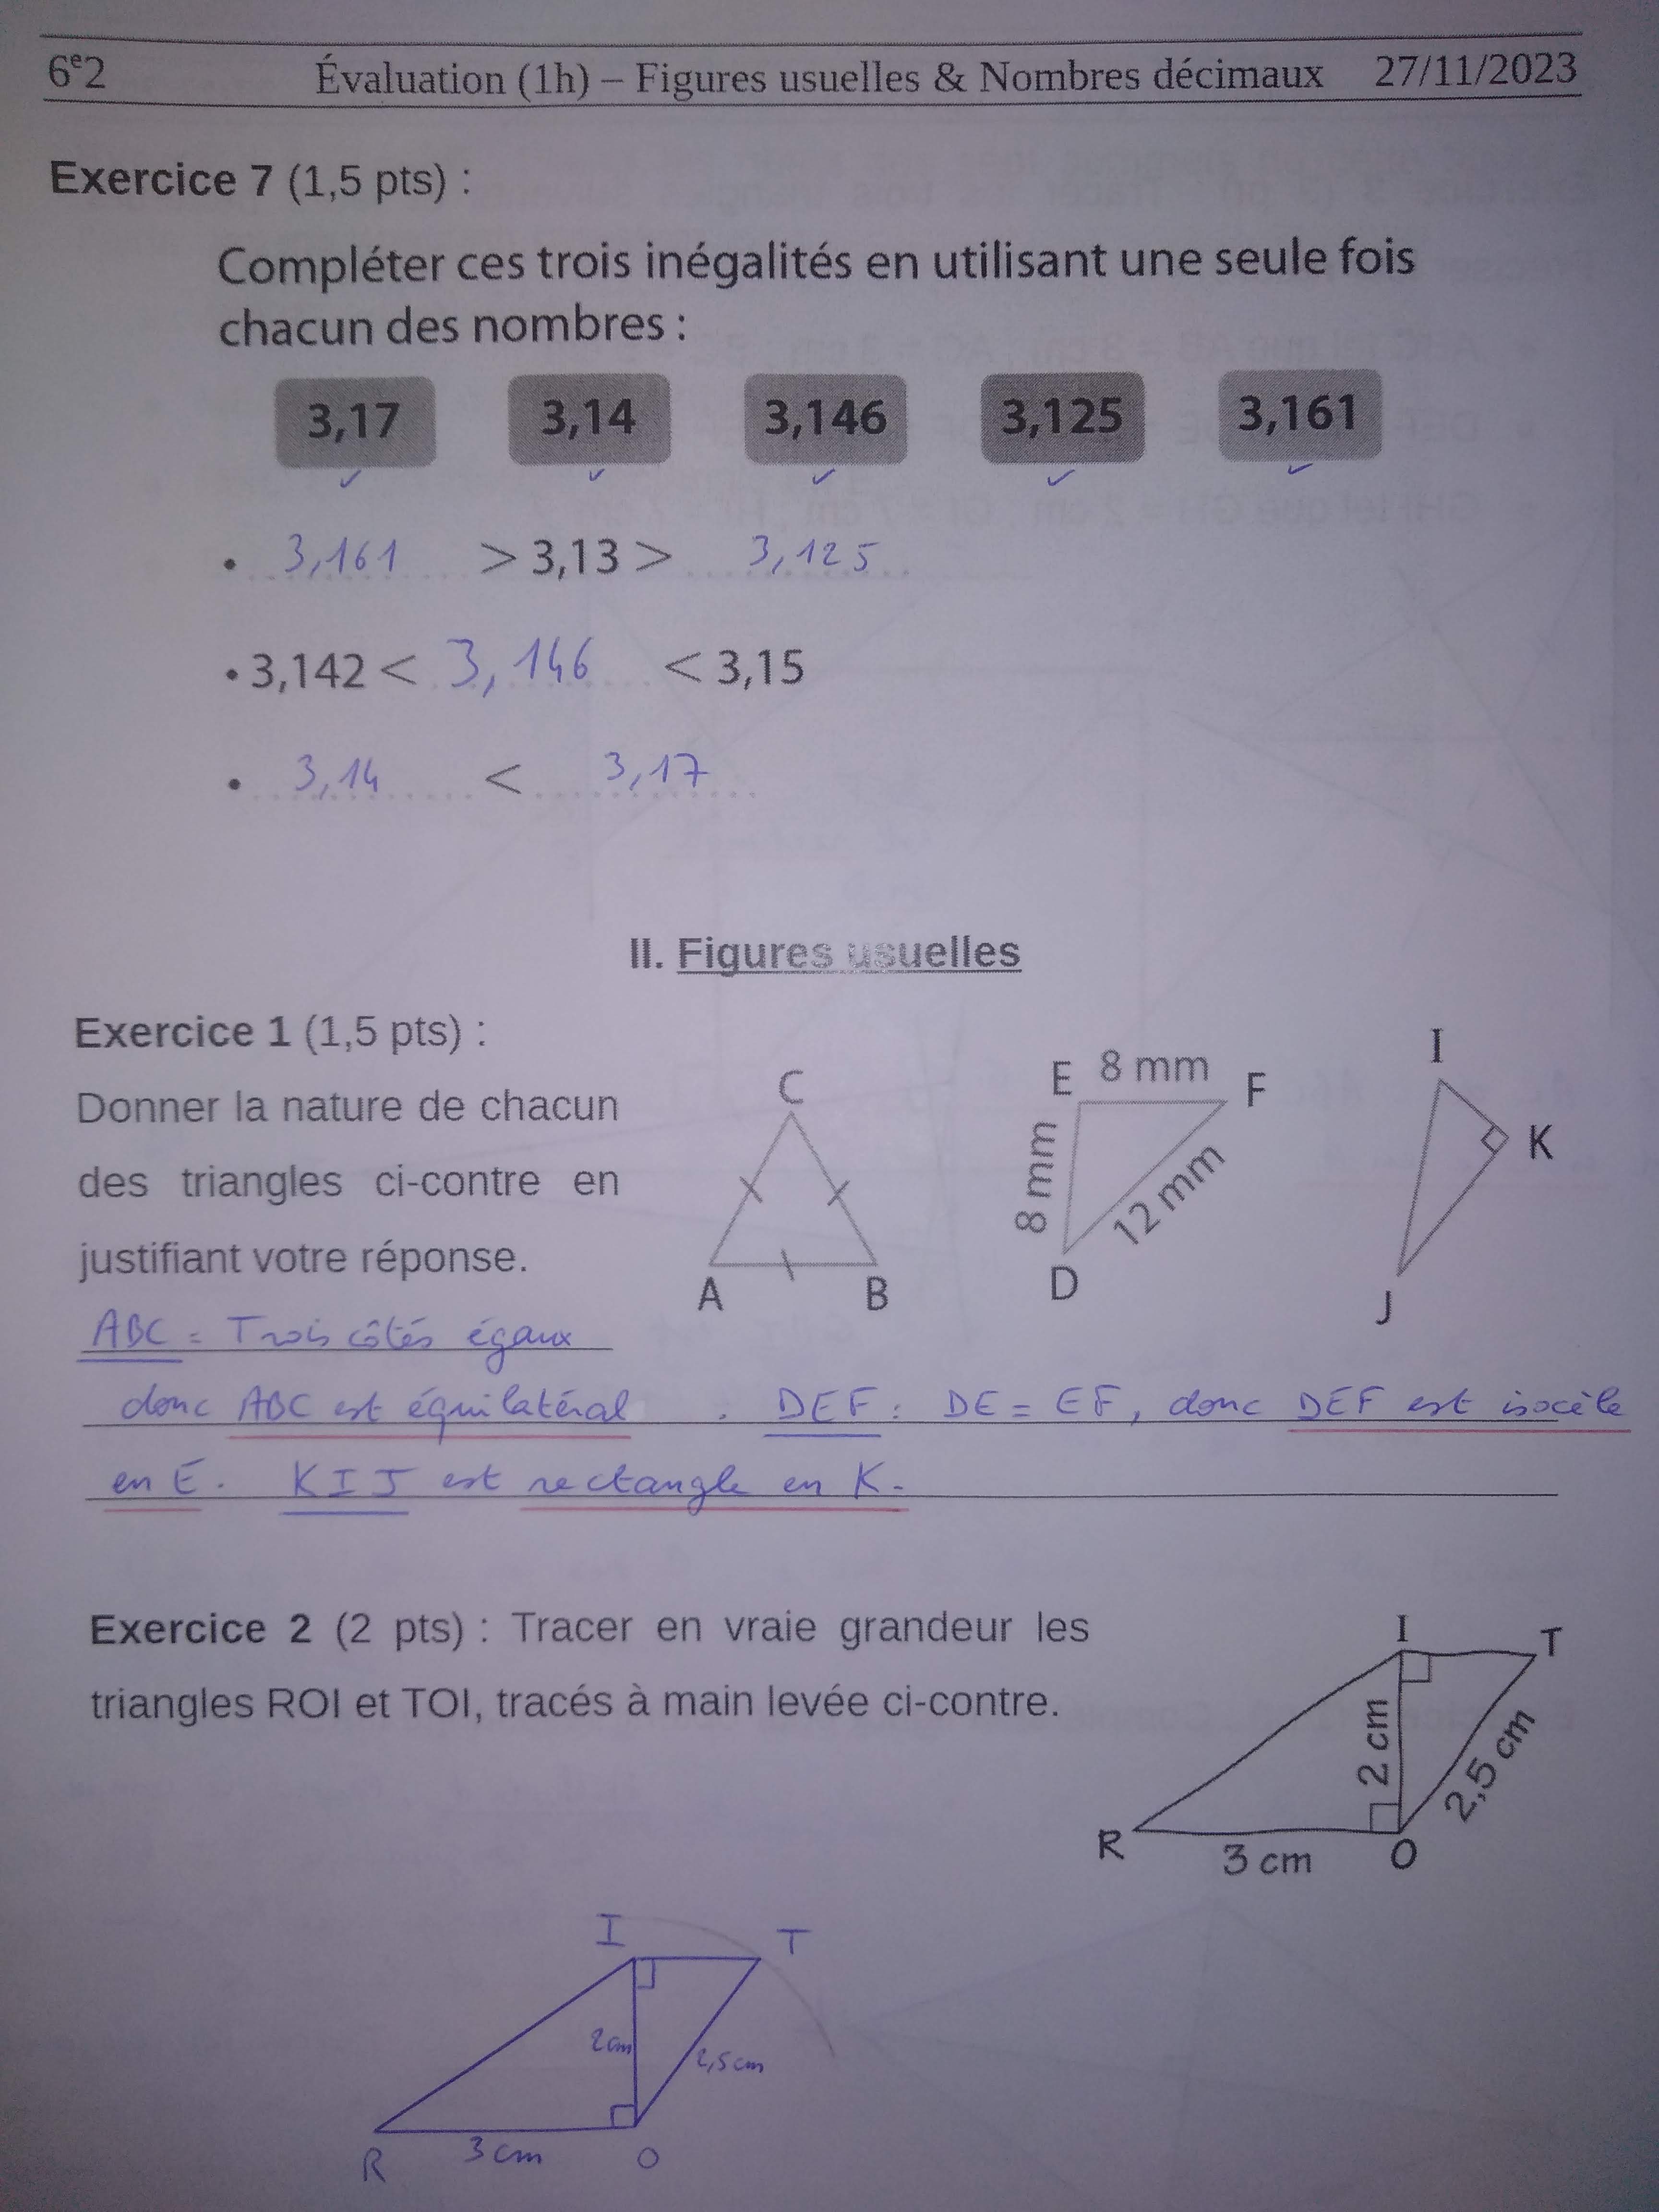 6e2 Évaluation (1h) – Figures usuelles & Nombres décimaux 27/11/2023
Exercice 7 (1,5 pts) :
Compléter ces trois inégalités en utilisant une seule fois
chacun des nombres :
3,17 3,14 3,146 3,125 3,161
• 3,161 > 3,13 > 3,125
• 3,142 < 3,146 < 3,15
• 3,14 < 3,17
II. Figures usuelles
Exercice 1 (1,5 pts) :
Donner la nature de chacun
des triangles ci-contre en
justifiant votre réponse.
C
A B
E 8 mm F
8 mm
12 mm
D
I
K
J
ABC = Trois côtés égaux
donc ABC est équilatéral . DEF : DE = EF, donc DEF est isocèle
en E. KIJ est rectangle en K.
Exercice 2 (2 pts) : Tracer en vraie grandeur les
triangles ROI et TOI, tracés à main levée ci-contre.
I T
2 cm
2,5 cm
R 3 cm O
I T
2cm 2,5cm
R 3cm O